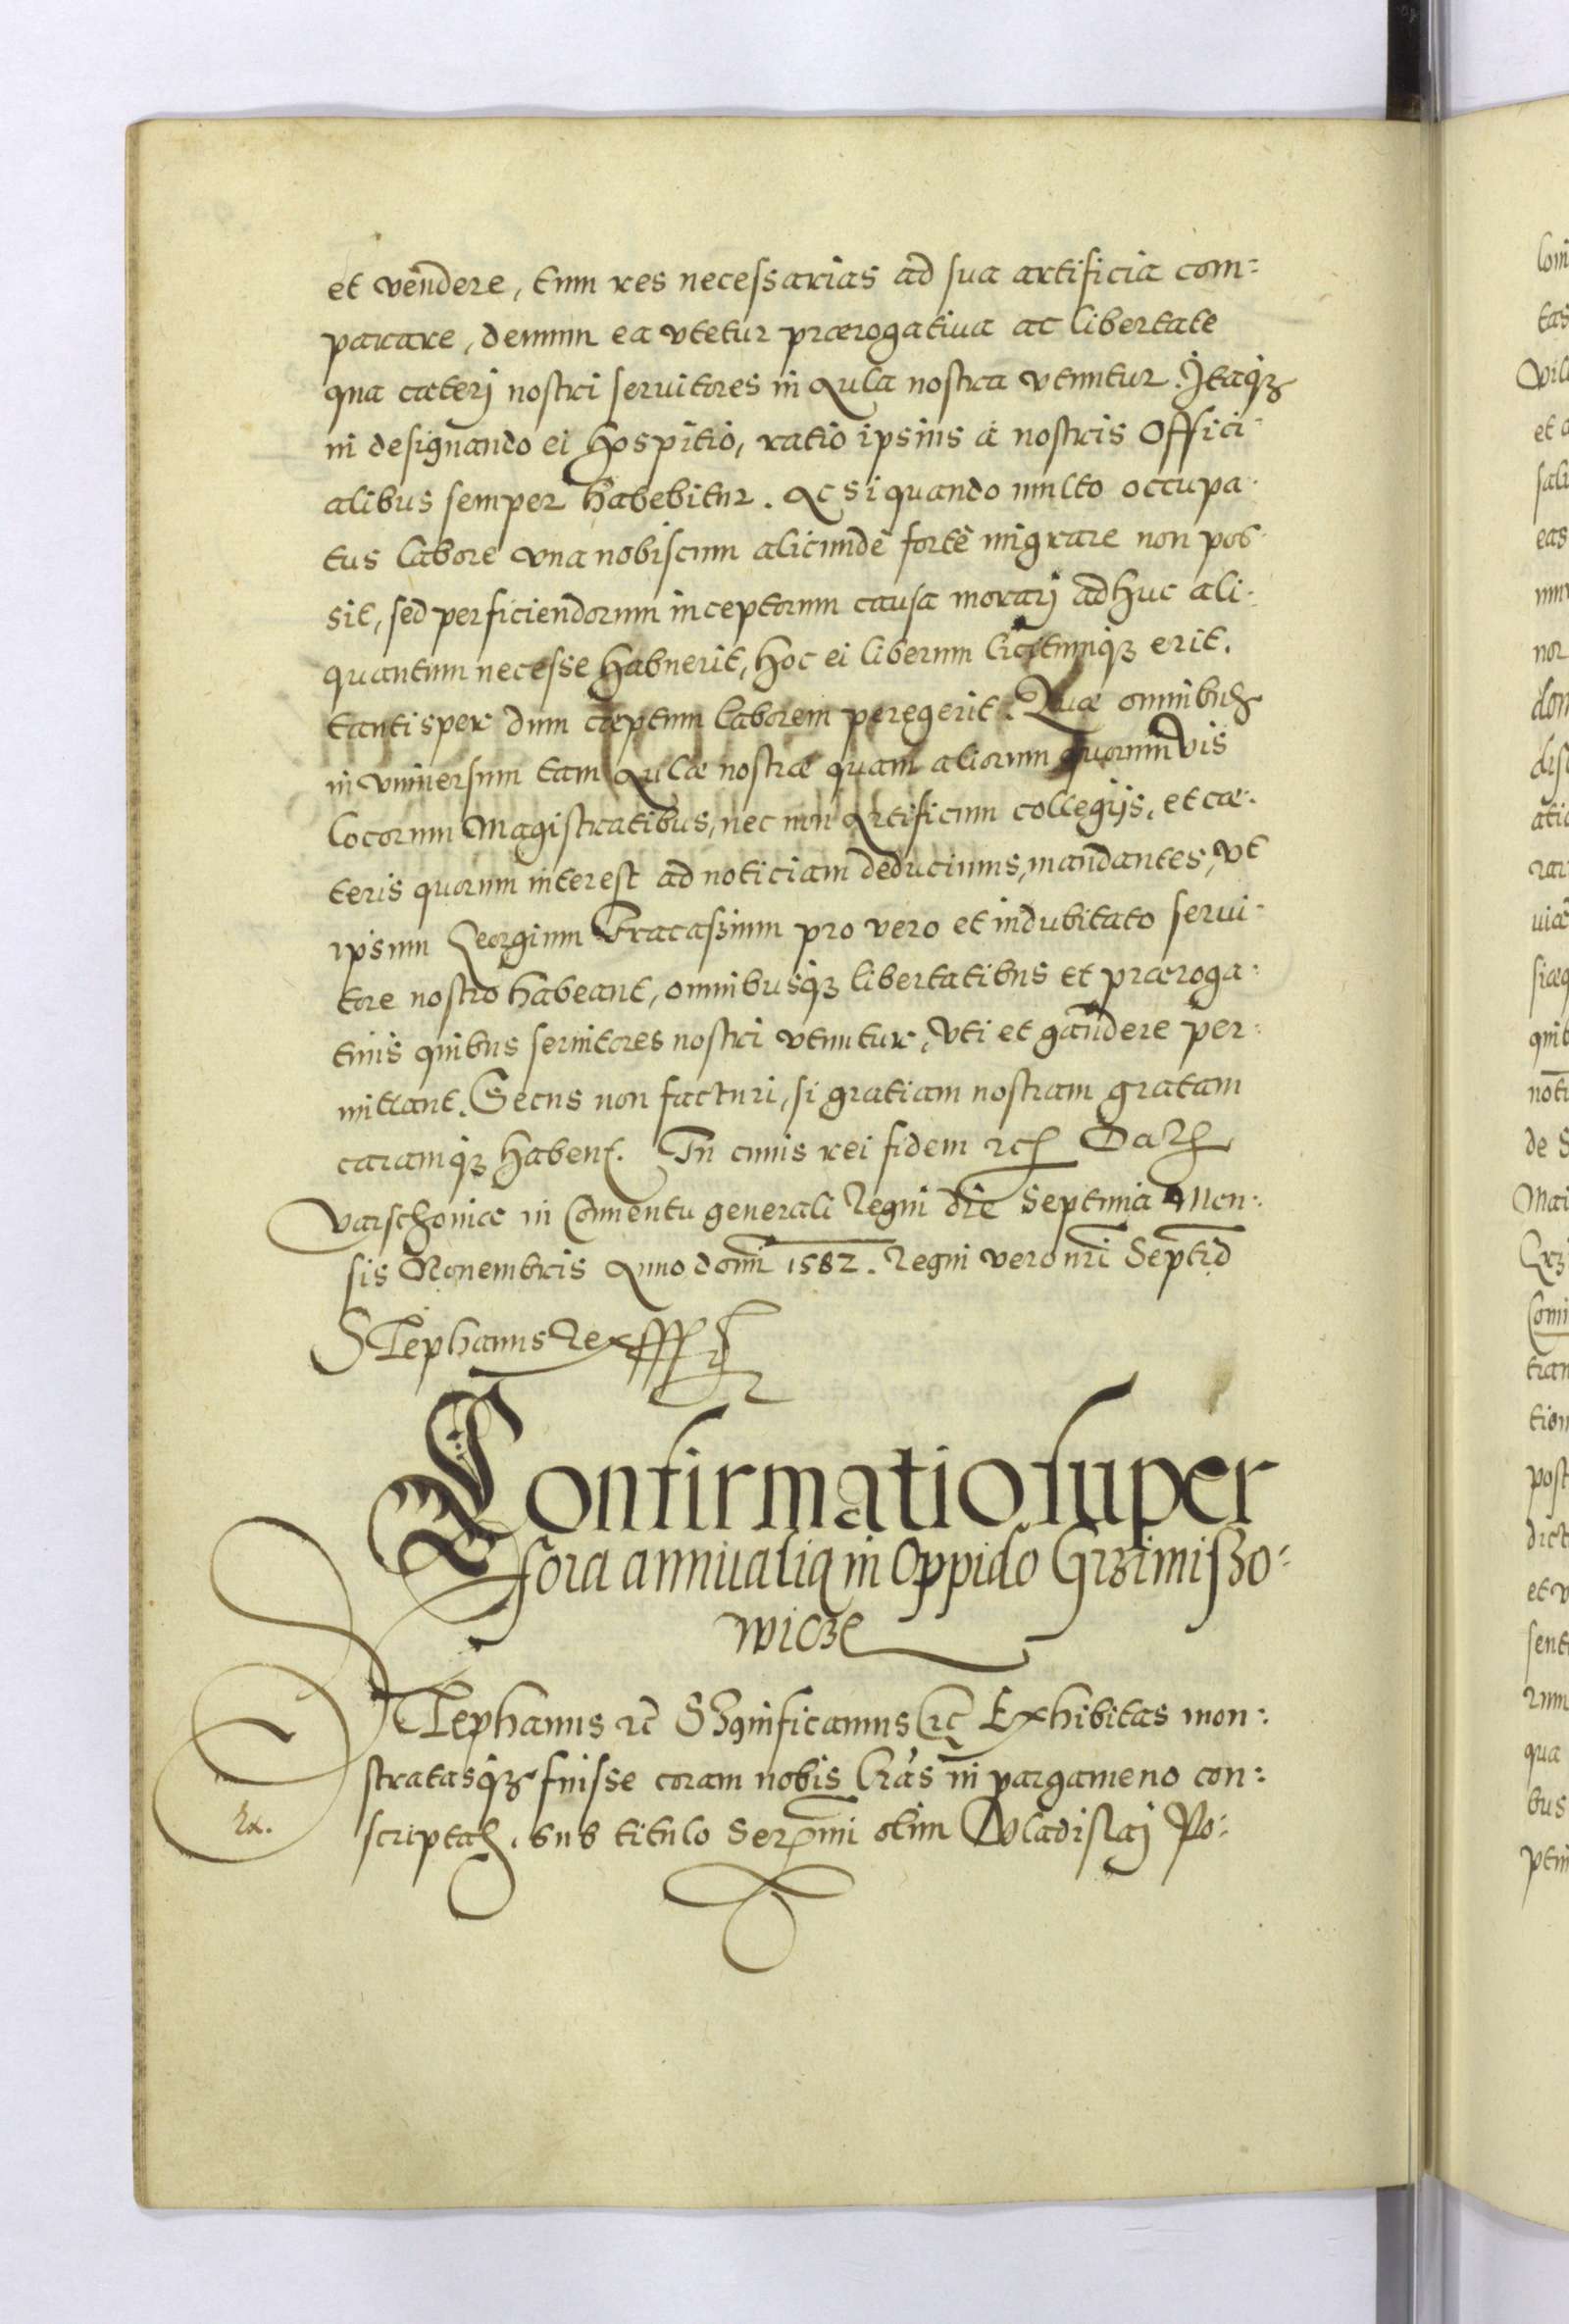 et vendere, tum res necessarias ad sua artificia com:
parare, demum ea vtetur prærogatiua ac libertate
qua cæterj nostri seruitores in Aula nostra vtuntur. Itaqꝫ
in designando ei hospitio, ratio ipsius à nostris Offici:
alibus semper habebitur. Ac si quando multo occupa:
tus labore vna nobiscum alicunde fortè migrare non pos:
sit, sed perficiendorum inceptorum causa morarj adhuc ali:
quantum necesse habuerit, hoc ei liberum licitumqꝫ erit.
tantisper dum cæptum laborem peregerit. Quæ omnibus
in vniuersum tam Aulæ nostræ quam aliorum quorumvis
locorum Magistratibus, nec non Artificum collegijs, et cæ:
teris quorum interest ad noticiam deducimus, mandantes, vt
ipsum Georgium Fracaszium pro vero et indubitato serui:
tore nostro habeant, omnibusqꝫ libertatibus et præroga:
tiuis quibus seruitores nostri vtuntur, vti et gaudere per:
mittant. Secus non facturi, si gratiam nostram gratam
caramqꝫ haben. In cuius rei fidem etc Dat
Varschouiæ in Conuentu generali Regni die Septima Men:
sis Nouembris Anno domi 1582. Regni vero nri Septio
Stephanus Rex
Confirmatio super
fora annualia in Oppido Grzimiszo:
wicze
Stephanus etc Significamus etc Exhibitas mon:
stratasqꝫ fuisse coram nobis lras in pargameno con:
scriptas, sub titulo Sermi olim Wladislaj Po: